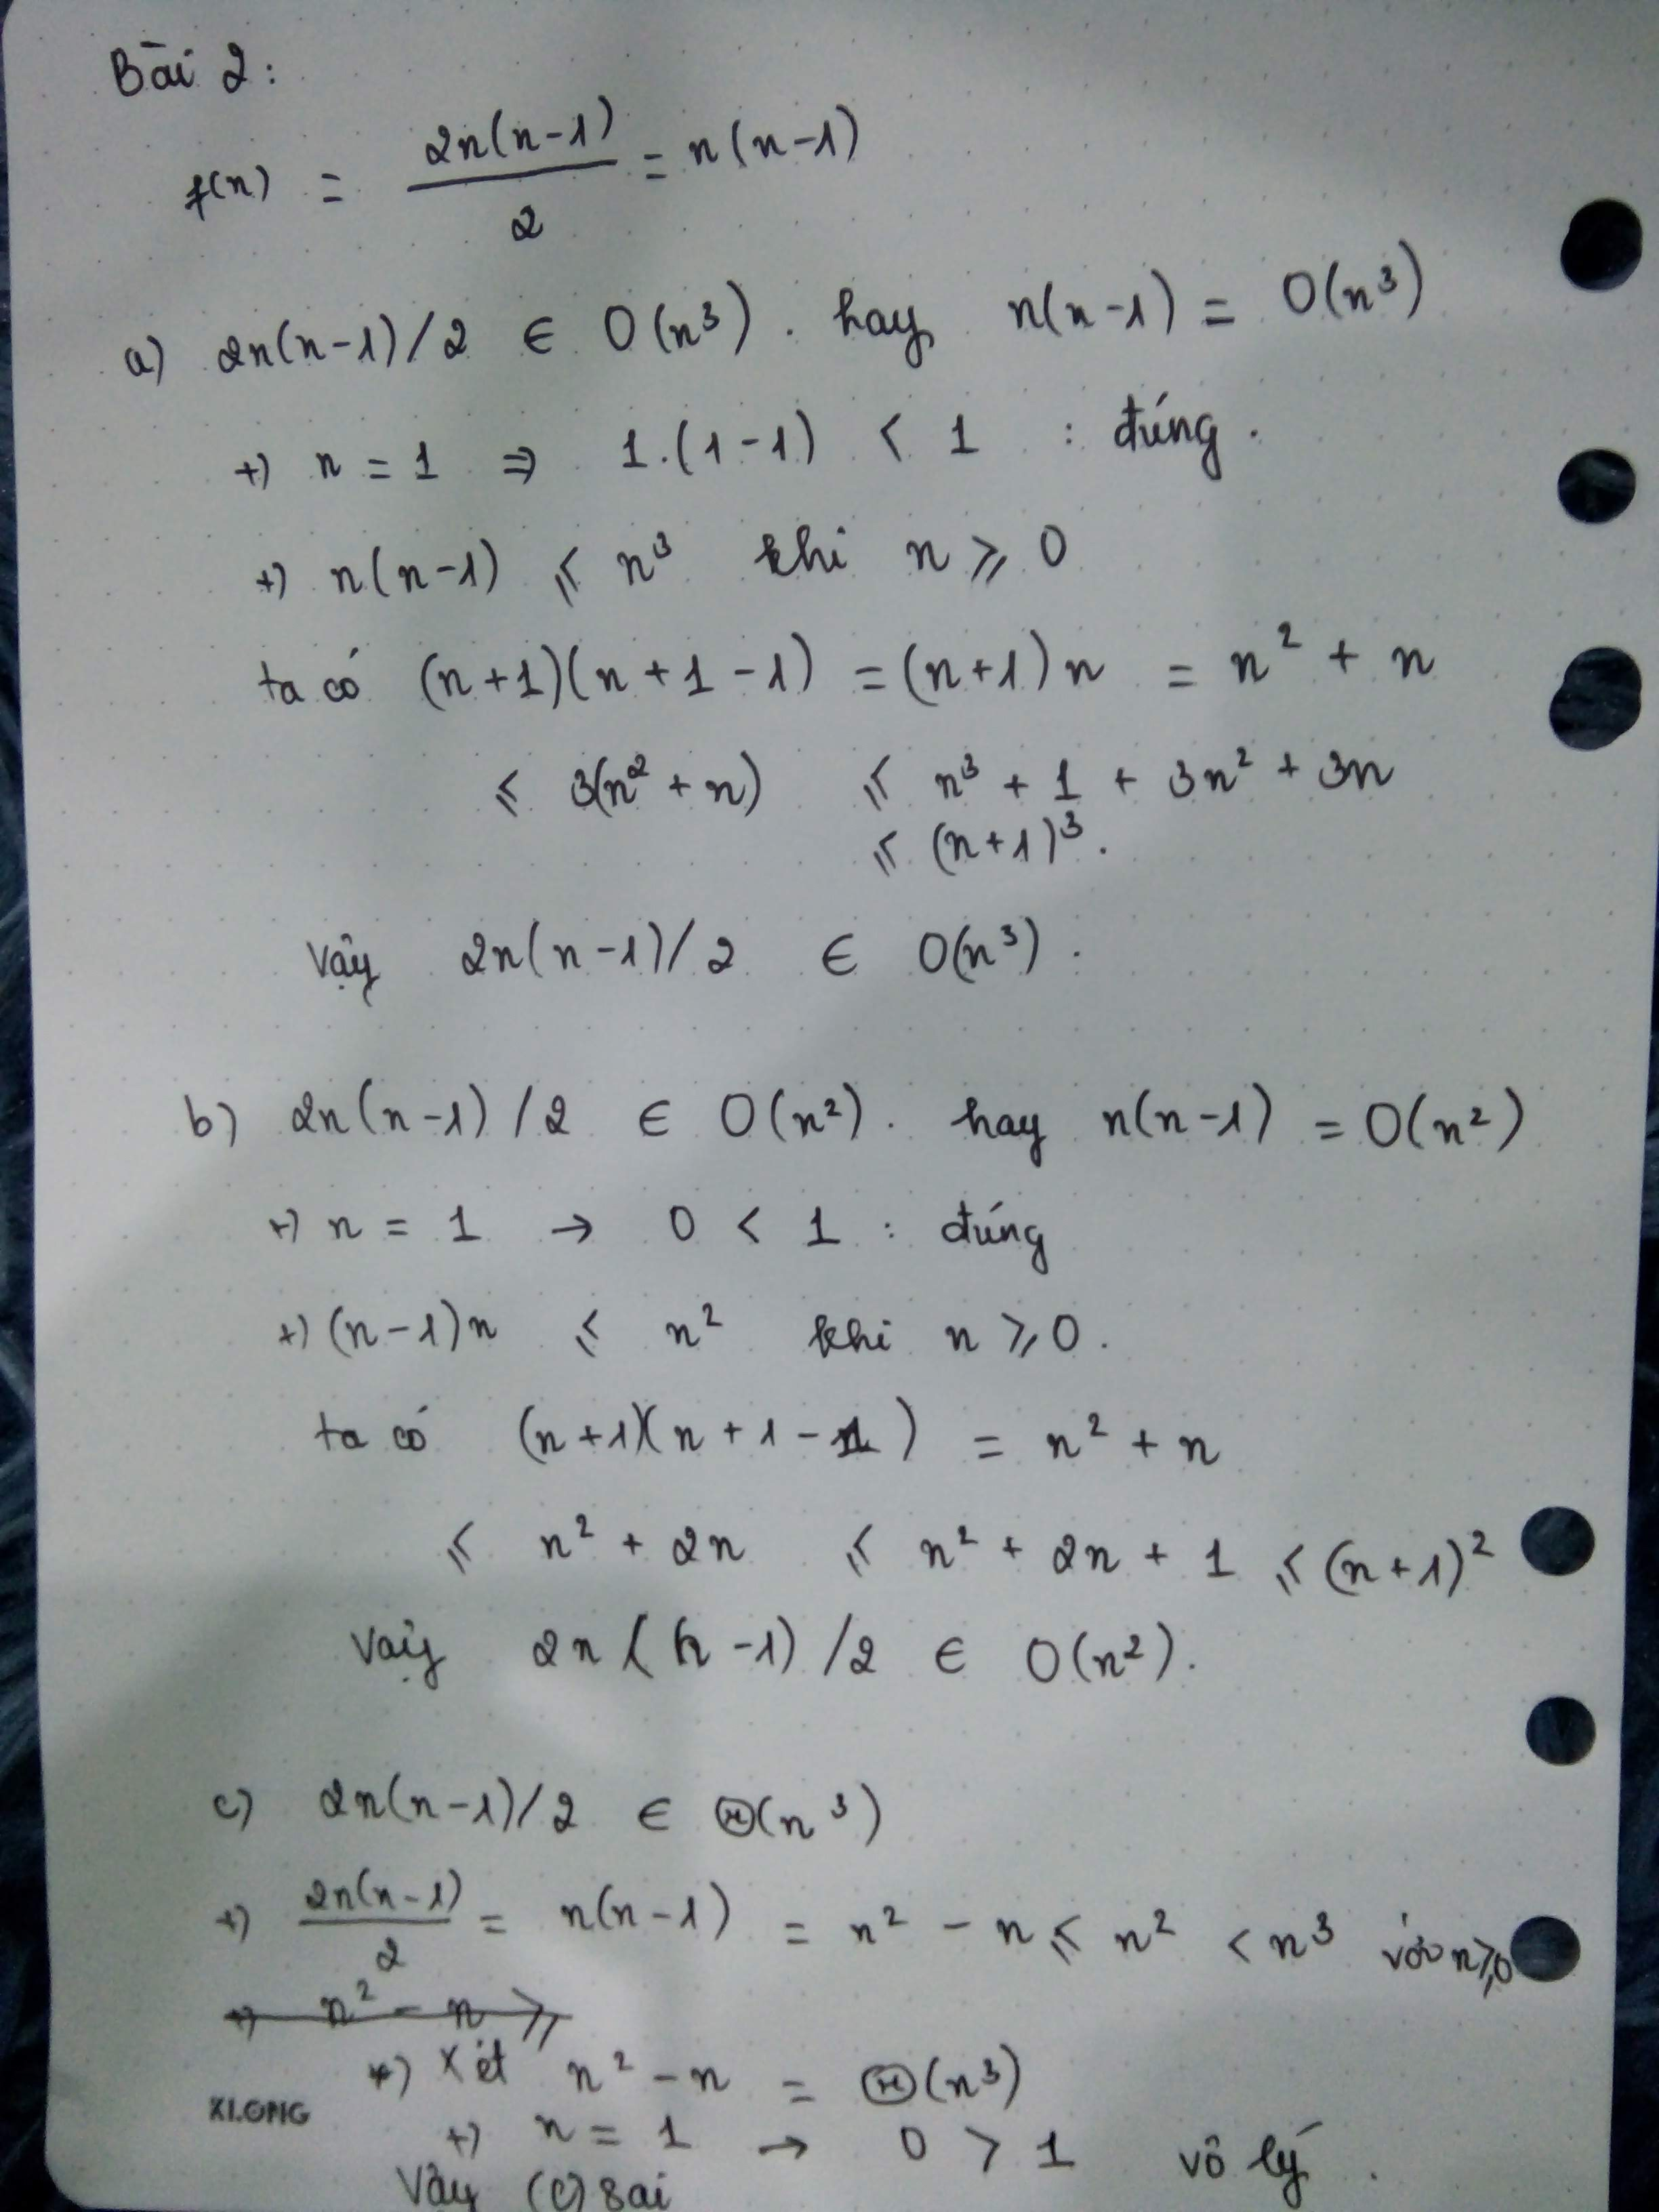 Bài 2:
f(n) = 2n(n-1)/2 = n(n-1)
a) 2n(n-1)/2 ∈ O(n³). hay n(n-1) = O(n³)
+) n = 1 ⇒ 1.(1-1) < 1 : đúng.
+) n(n-1) ≤ n³ khi n ≥ 0
ta có (n+1)(n+1-1) = (n+1)n = n² + n
≤ 3(n² + n) ≤ n³ + 1 + 3n² + 3n
≤ (n+1)³.
Vậy 2n(n-1)/2 ∈ O(n³).
b) 2n(n-1)/2 ∈ O(n²). hay n(n-1) = O(n²)
+) n = 1 → 0 < 1 : đúng
+) (n-1)n ≤ n² khi n ≥ 0.
ta có (n+1)(n+1-1) = n² + n
≤ n² + 2n ≤ n² + 2n + 1 ≤ (n+1)²
Vậy 2n(n-1)/2 ∈ O(n²).
c) 2n(n-1)/2 ∈ Θ(n³)
+) 2n(n-1)/2 = n(n-1) = n² - n ≤ n² < n³ với n≥0
+) n² - n ≥
*) Xét n² - n = Θ(n³)
KLONG
+) n = 1 → 0 > 1 vô lý.
Vậy (c) sai